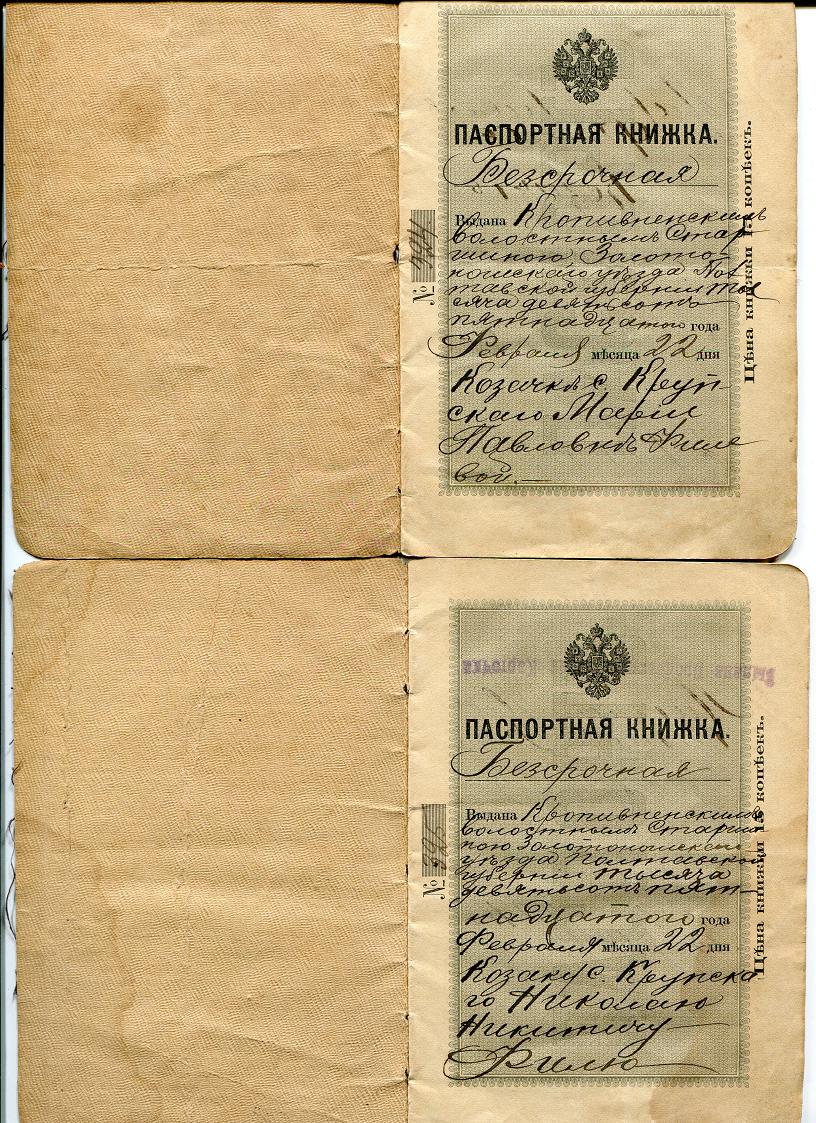 ПАСПОРТНАЯ КНИЖКА.
Безсрочная
Выдана Кропивненскимъ
Волостнымъ Стар-
шиною Золото-
ношскаго уѣзда Пол
тавской губерніи ты
сяча девятьсотъ
пятнадцатого года
Февраля мѣсяца 22 дня
Козачкѣ с. Круп-
скаго Маріи
Павловнѣ Филе
вой.—
№
Цѣна книжки 15 копѣекъ.
ПАСПОРТНАЯ КНИЖКА.
Безсрочная
Выдана Кропивненскимъ
Волостнымъ Старши
ною Золотоношскаго
уѣзда Полтавской
губерніи тысяча
девятьсотъ пят-
надцатого года
Февраля мѣсяца 22 дня
Козаку с. Крупска
го Николаю
Никитичу
Филю
№
Цѣна книжки 15 копѣекъ.